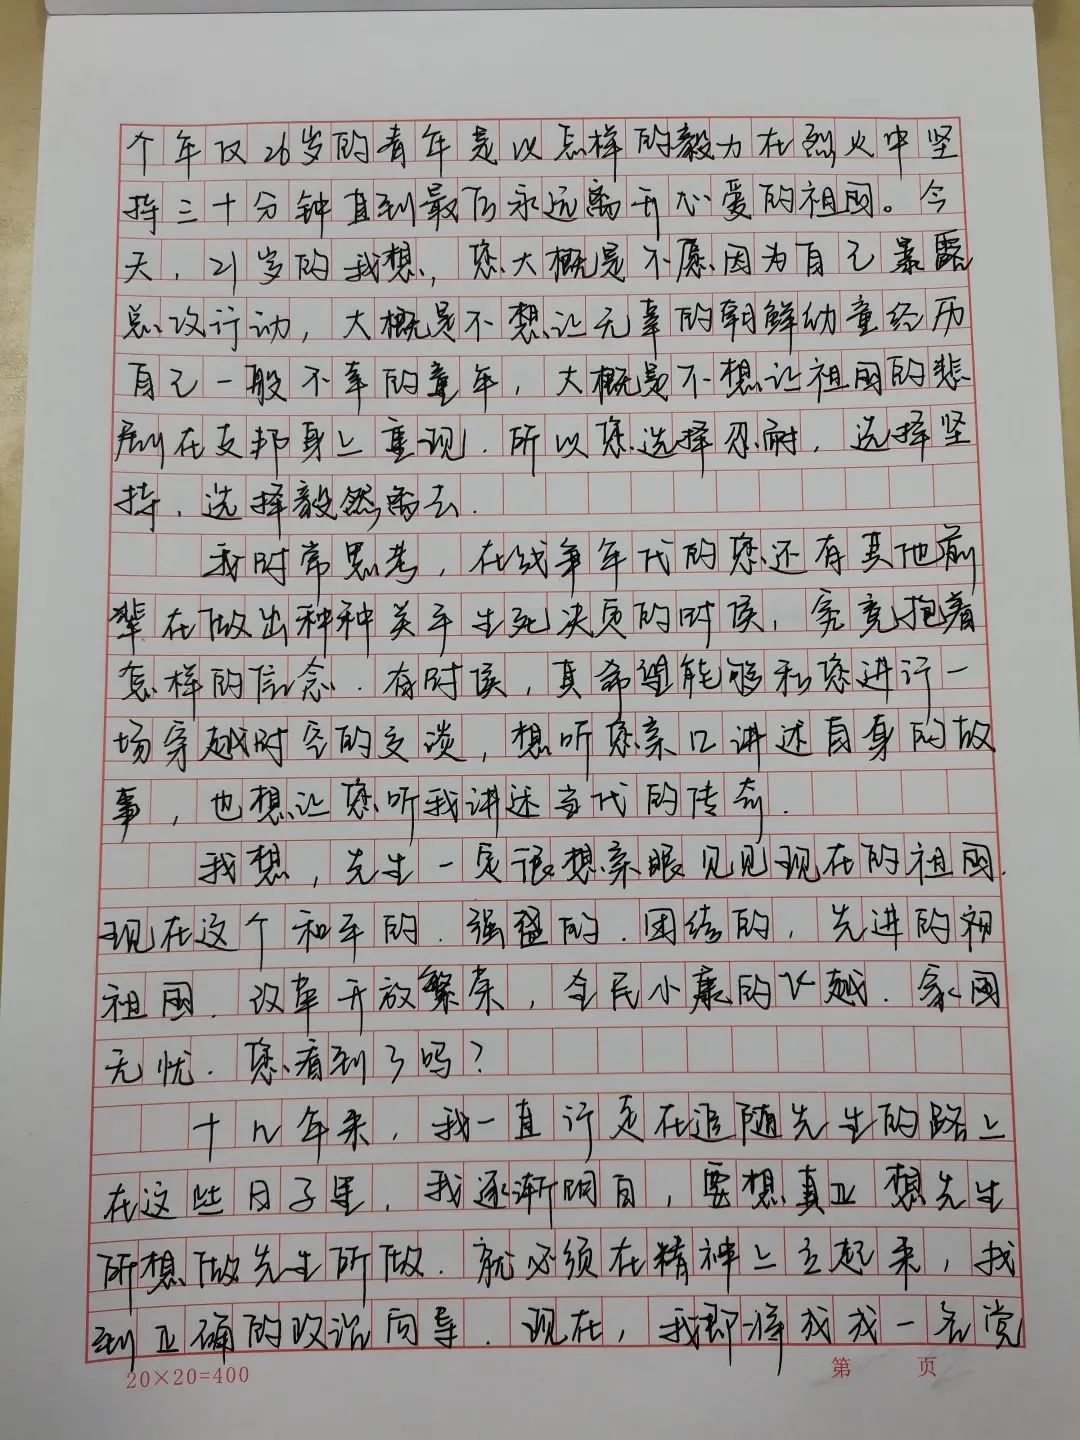 个年仅26岁的青年是以怎样的毅力在烈火中坚
持三十分钟直到最后永远离开心爱的祖国。今
天，21岁的我想，您大概是不愿因为自己暴露
总攻行动，大概是不想让无辜的朝鲜幼童经历
自己一般不幸的童年，大概是不想让祖国的悲
剧在友邦身上重现.所以您选择忍耐，选择坚
持，选择毅然离去.
我时常思考，在战争年代的您还有其他前
辈在做出种种关乎生死决员的时候，究竟抱着
怎样的信念.有时候，真希望能够和您进行一
场穿越时空的交谈，想听您亲口讲述自身的故
事，也想让您听我讲述当代的传奇.
我想，先生一定很想亲眼见见现在的祖国.
现在这个和平的.强盛的.团结的，先进的初
祖国.改革开放繁荣，全民小康的飞越.家国
无忧.您看到了吗？
十几年来，我一直行走在追随先生的路上
在这些日子里，我逐渐明白，要想真正想先生
所想做先生所做.就必须在精神上立起来，找
到正确的政治向导.现在，我即将成我一名党
20×20=400
第 页